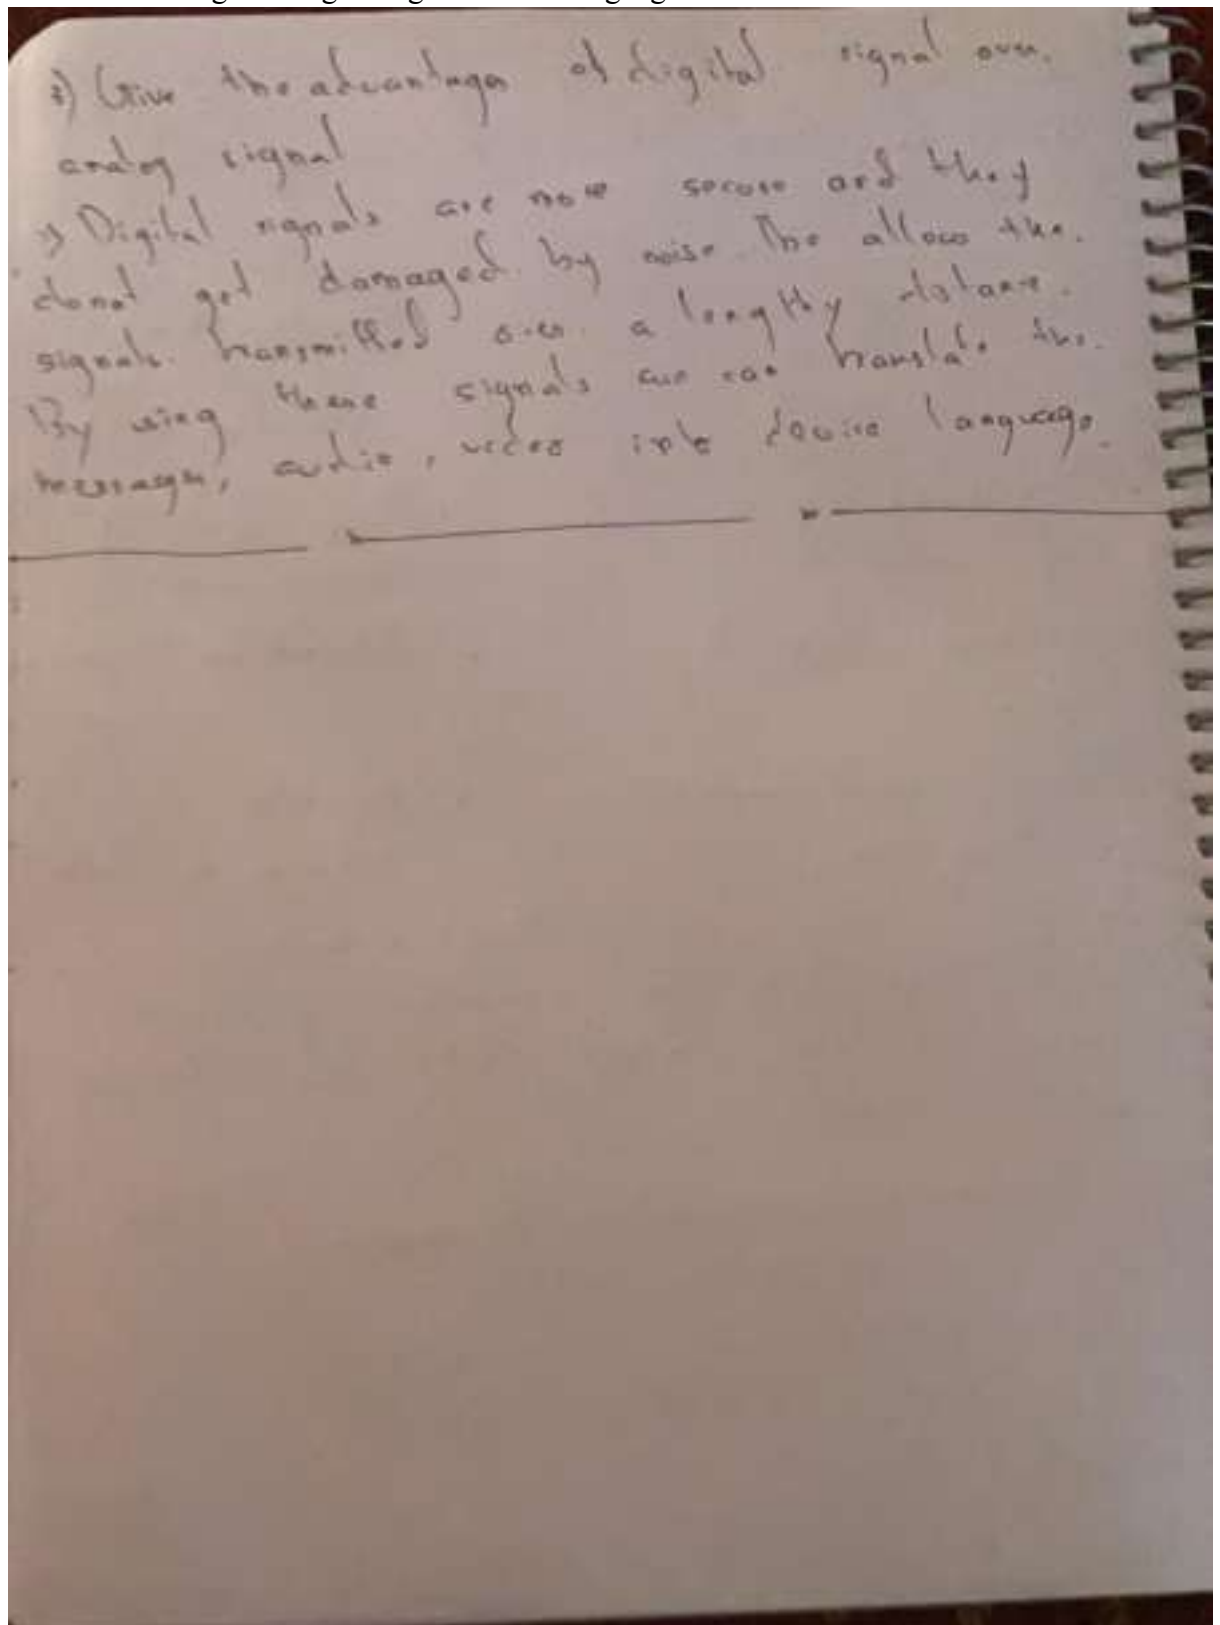 Give the advantages of digital signal over
analog signal
Digital signals are more secure and they
donot get damaged by noise. The allow the
signals transmitted over a lengthy distance.
By using these signals we can translate the
messages, audio, video into device language.